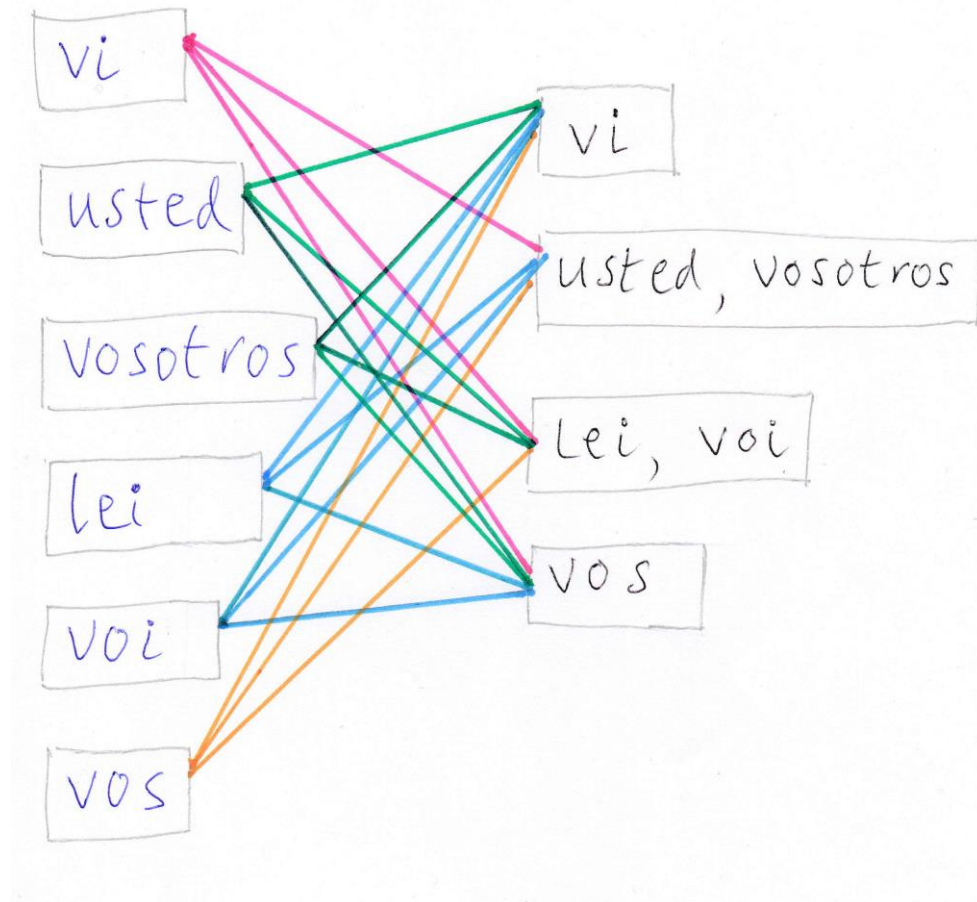 vi
usted
vosotros
lei
voi
vos
vi
usted, vosotros
Lei, voi
vos